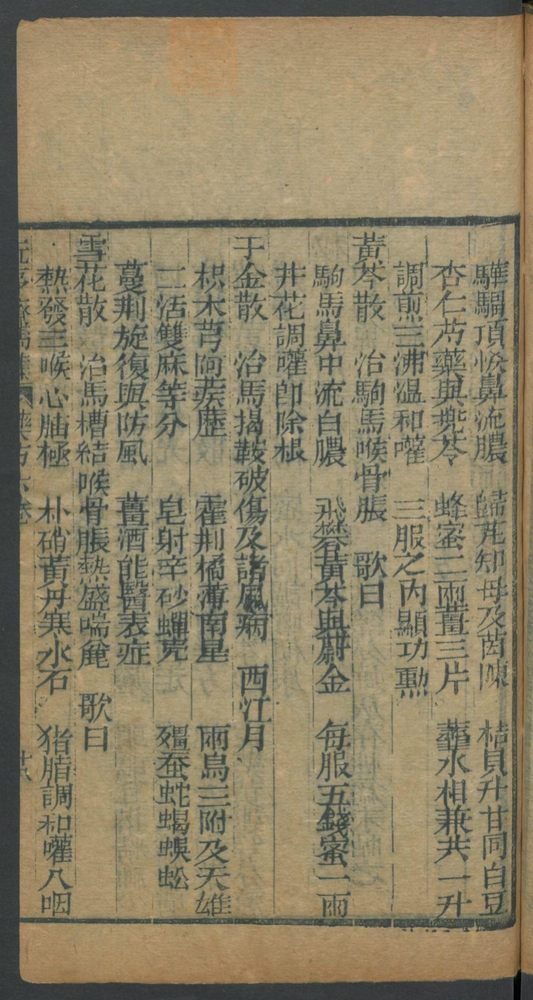 驊騮項恢鼻流膿 歸芃知母及茵陳 桔貝升甘同白豆
杏仁芍藥與兠苓 蜂蜜二兩薑三片 虀水相兼共一升
調煎三沸溫和嚾 三服之內顯功勲
黃芩散 治駒馬喉骨脹 歌曰
駒馬鼻中流白膿 飛礬黃芩與蔚金 每服五錢蜜二兩
井花調嚾即除根
千金散 治馬揭鞍破傷及諸風病 西江月
枳木芎南蒺蔾 霍荆橘薄南星 兩烏三附及天雄
二活雙麻等分 皂射辛砂蟬壳 殭蚕蛇蝎蜈蚣
蔓荆旋復與防風 薑酒能醫表症
雪花散 治馬槽結喉骨脹熱盛喘麄 歌曰
熱發三喉心肺極 朴硝黃丹寒水石 猪脂調和嚾八咽
藥方六卷